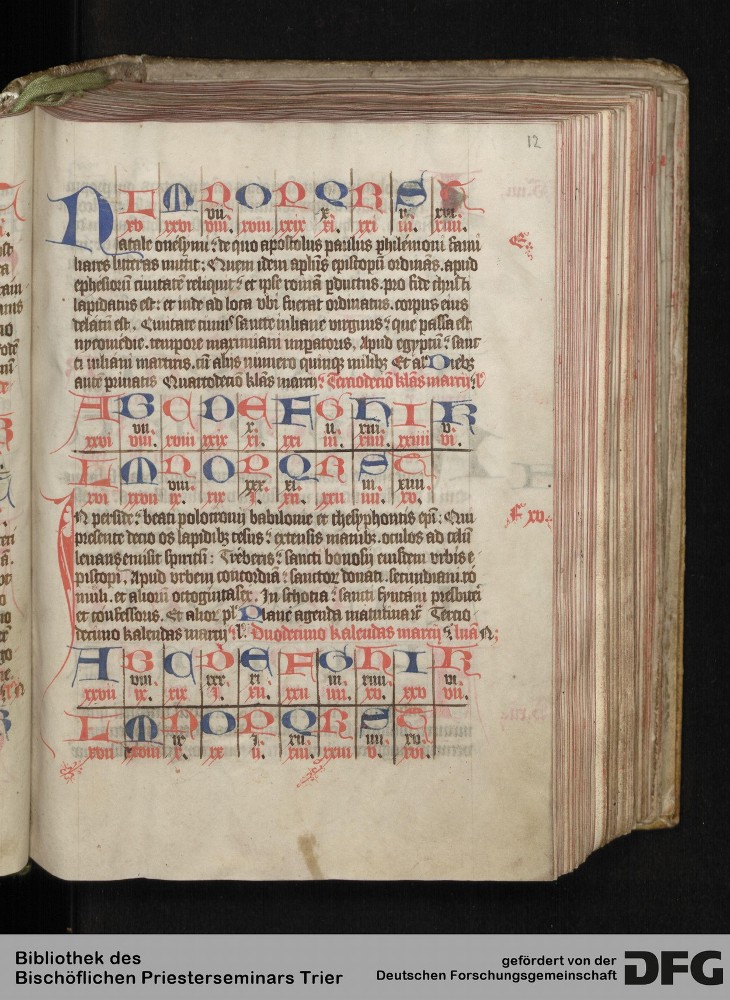 12
L M N O P Q R S T
vii. x. ii. xiii.
xv xxvi viii. xviii xxix xi. xxi iii. xiiii.
Natale onesymi de quo apostolus paulus philemoni fami
liares litteras mittit: Quem idem apl̄us epistopū ordinās. apud
ephesiorū ciuitatē reliquit et ipse romā pductus. pro fide christi
lapidatus est: et inde ad loca vbi fuerat ordinatus. corpus eius
delatū est. Ciuitate cumis sancte iuliane virginis que passa est
nycomedie. tempore maximiani impatoris. Apud egyptū sanc
ti iuliani martiris. cū aliis numero quinqꝫ milibꝫ Et al Diebꝫ
ante primatis Quartodecīo klas marcii Terciodecīo klas marcii
A B C D E F G H I K
vii. x. ii. xiii. v.
xxvi viii. xviii xxix xi. xxi iii. xiiii. xxiiii vi.
L M N O P Q R S T
viii. xxx. xi. iii xiiii.
xvi xxvii ix. xix i. xii. xxii iiii. xv.
In perside beati polocronii babilonie et thesyphontis epī: Qui
E xv.
presente decio os lapidibꝫ cesus extensis manibꝫ. oculos ad celū
leuans emisit spiritū: Treberis sancti bonosii eiusdem vrbis e
pistopi. Apud vrbem concordiā sanctoꝝ donati. secundiani. ro
muli. et alioꝝ octogintasex. In schotia sancti fyntani presbiteri
et confessoris. Et alioꝝ pl Plane agenda matutina Tercio
decimo kalendas marcii Duodecimo kalendas marcii luā N;
A B C D E F G H I K
viii. xxx. xi. iii. xiiii. vi.
xxvii ix. xix i. xii. xxii iiii. xv. xxv vii.
L M N O P Q R S T
ix i. xii. iiii. xv.
xvii xxviii x. xx ii. xiii. xxiii v. xvi.
Bibliothek des
Bischöflichen Priesterseminars Trier
gefördert von der
Deutschen Forschungsgemeinschaft
DFG